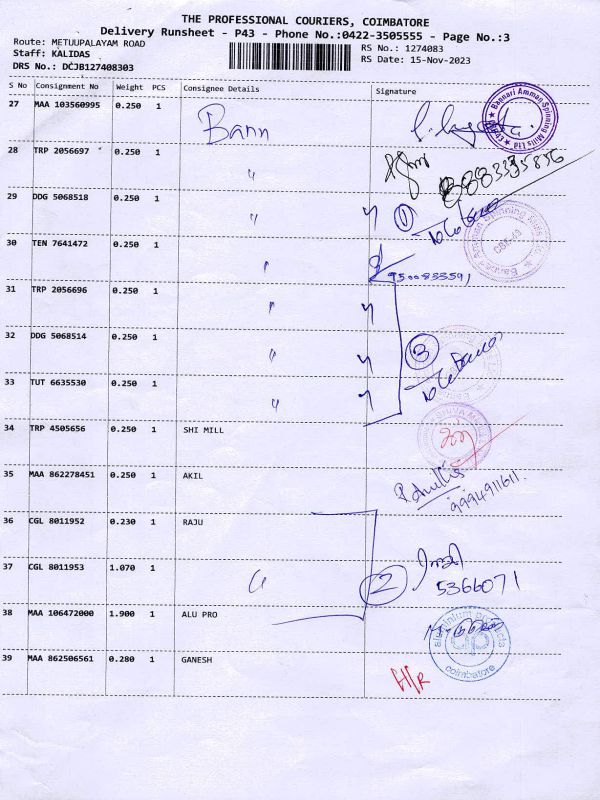 THE PROFESSIONAL COURIERS, COIMBATORE
Delivery Runsheet - P43 - Phone No.:0422-3505555 - Page No.:3
Route: METUUPALAYAM ROAD
Staff: KALIDAS
DRS No.: DCJB127408303
RS No.: 1274083
RS Date: 15-Nov-2023
S No Consignment No Weight PCS Consignee Details Signature
27 MAA 103560995 0.250 1 Bann
Bannari Amman Spinning Mills Ltd
28 TRP 2056697 0.250 1 "
29 DDG 5068518 0.250 1 " 1
30 TEN 7641472 0.250 1 " 9500833591
31 TRP 2056696 0.250 1 "
32 DDG 5068514 0.250 1 " 3
33 TUT 6635530 0.250 1 "
34 TRP 4505656 0.250 1 SHI MILL
35 MAA 862278451 0.250 1 AKIL
9994911611
36 CGL 8011952 0.230 1 RAJU
37 CGL 8011953 1.070 1 " 2
5366071
38 MAA 106472000 1.900 1 ALU PRO
aluminium products
coimbatore
39 MAA 862506561 0.280 1 GANESH
H/R